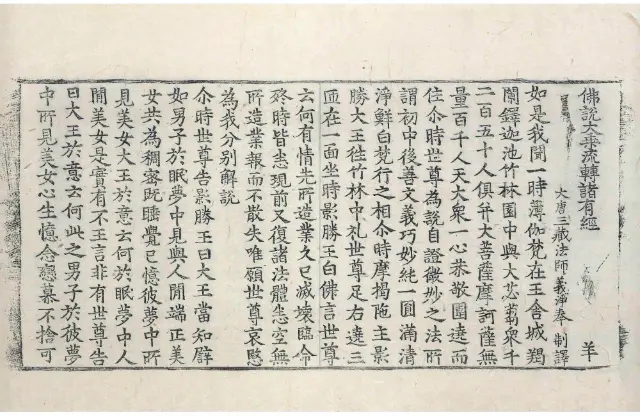 佛說大乘流轉諸有經 羊
大唐三藏法師義淨奉 制譯
如是我聞一時薄伽梵在王舍城羯
闌鐸迦池竹林園中與大苾芻衆千
二百五十人俱并大菩薩摩訶薩無
量百千人天大衆一心恭敬圍遶而
住尒時世尊為說自證微妙之法所
謂初中後善文義巧妙純一圓滿清
淨鮮白梵行之相尒時摩揭陁主影
勝大王徃竹林中礼世尊足右遶三
匝在一面坐時影勝王白佛言世尊
云何有情先所造業久已滅壞臨命
終時皆悉現前又復諸法體悉空無
所造業報而不散失唯願世尊哀愍
為我分別解說
尒時世尊告影勝王曰大王當知譬
如男子於眠夢中見與人閒端正美
女共為稠密旣睡覺已憶彼夢中所
見美女大王於意云何於眠夢中人
閒美女是實有不王言非有世尊告
曰大王於意云何此之男子於彼夢
中所見美女心生憶念戀慕不捨可